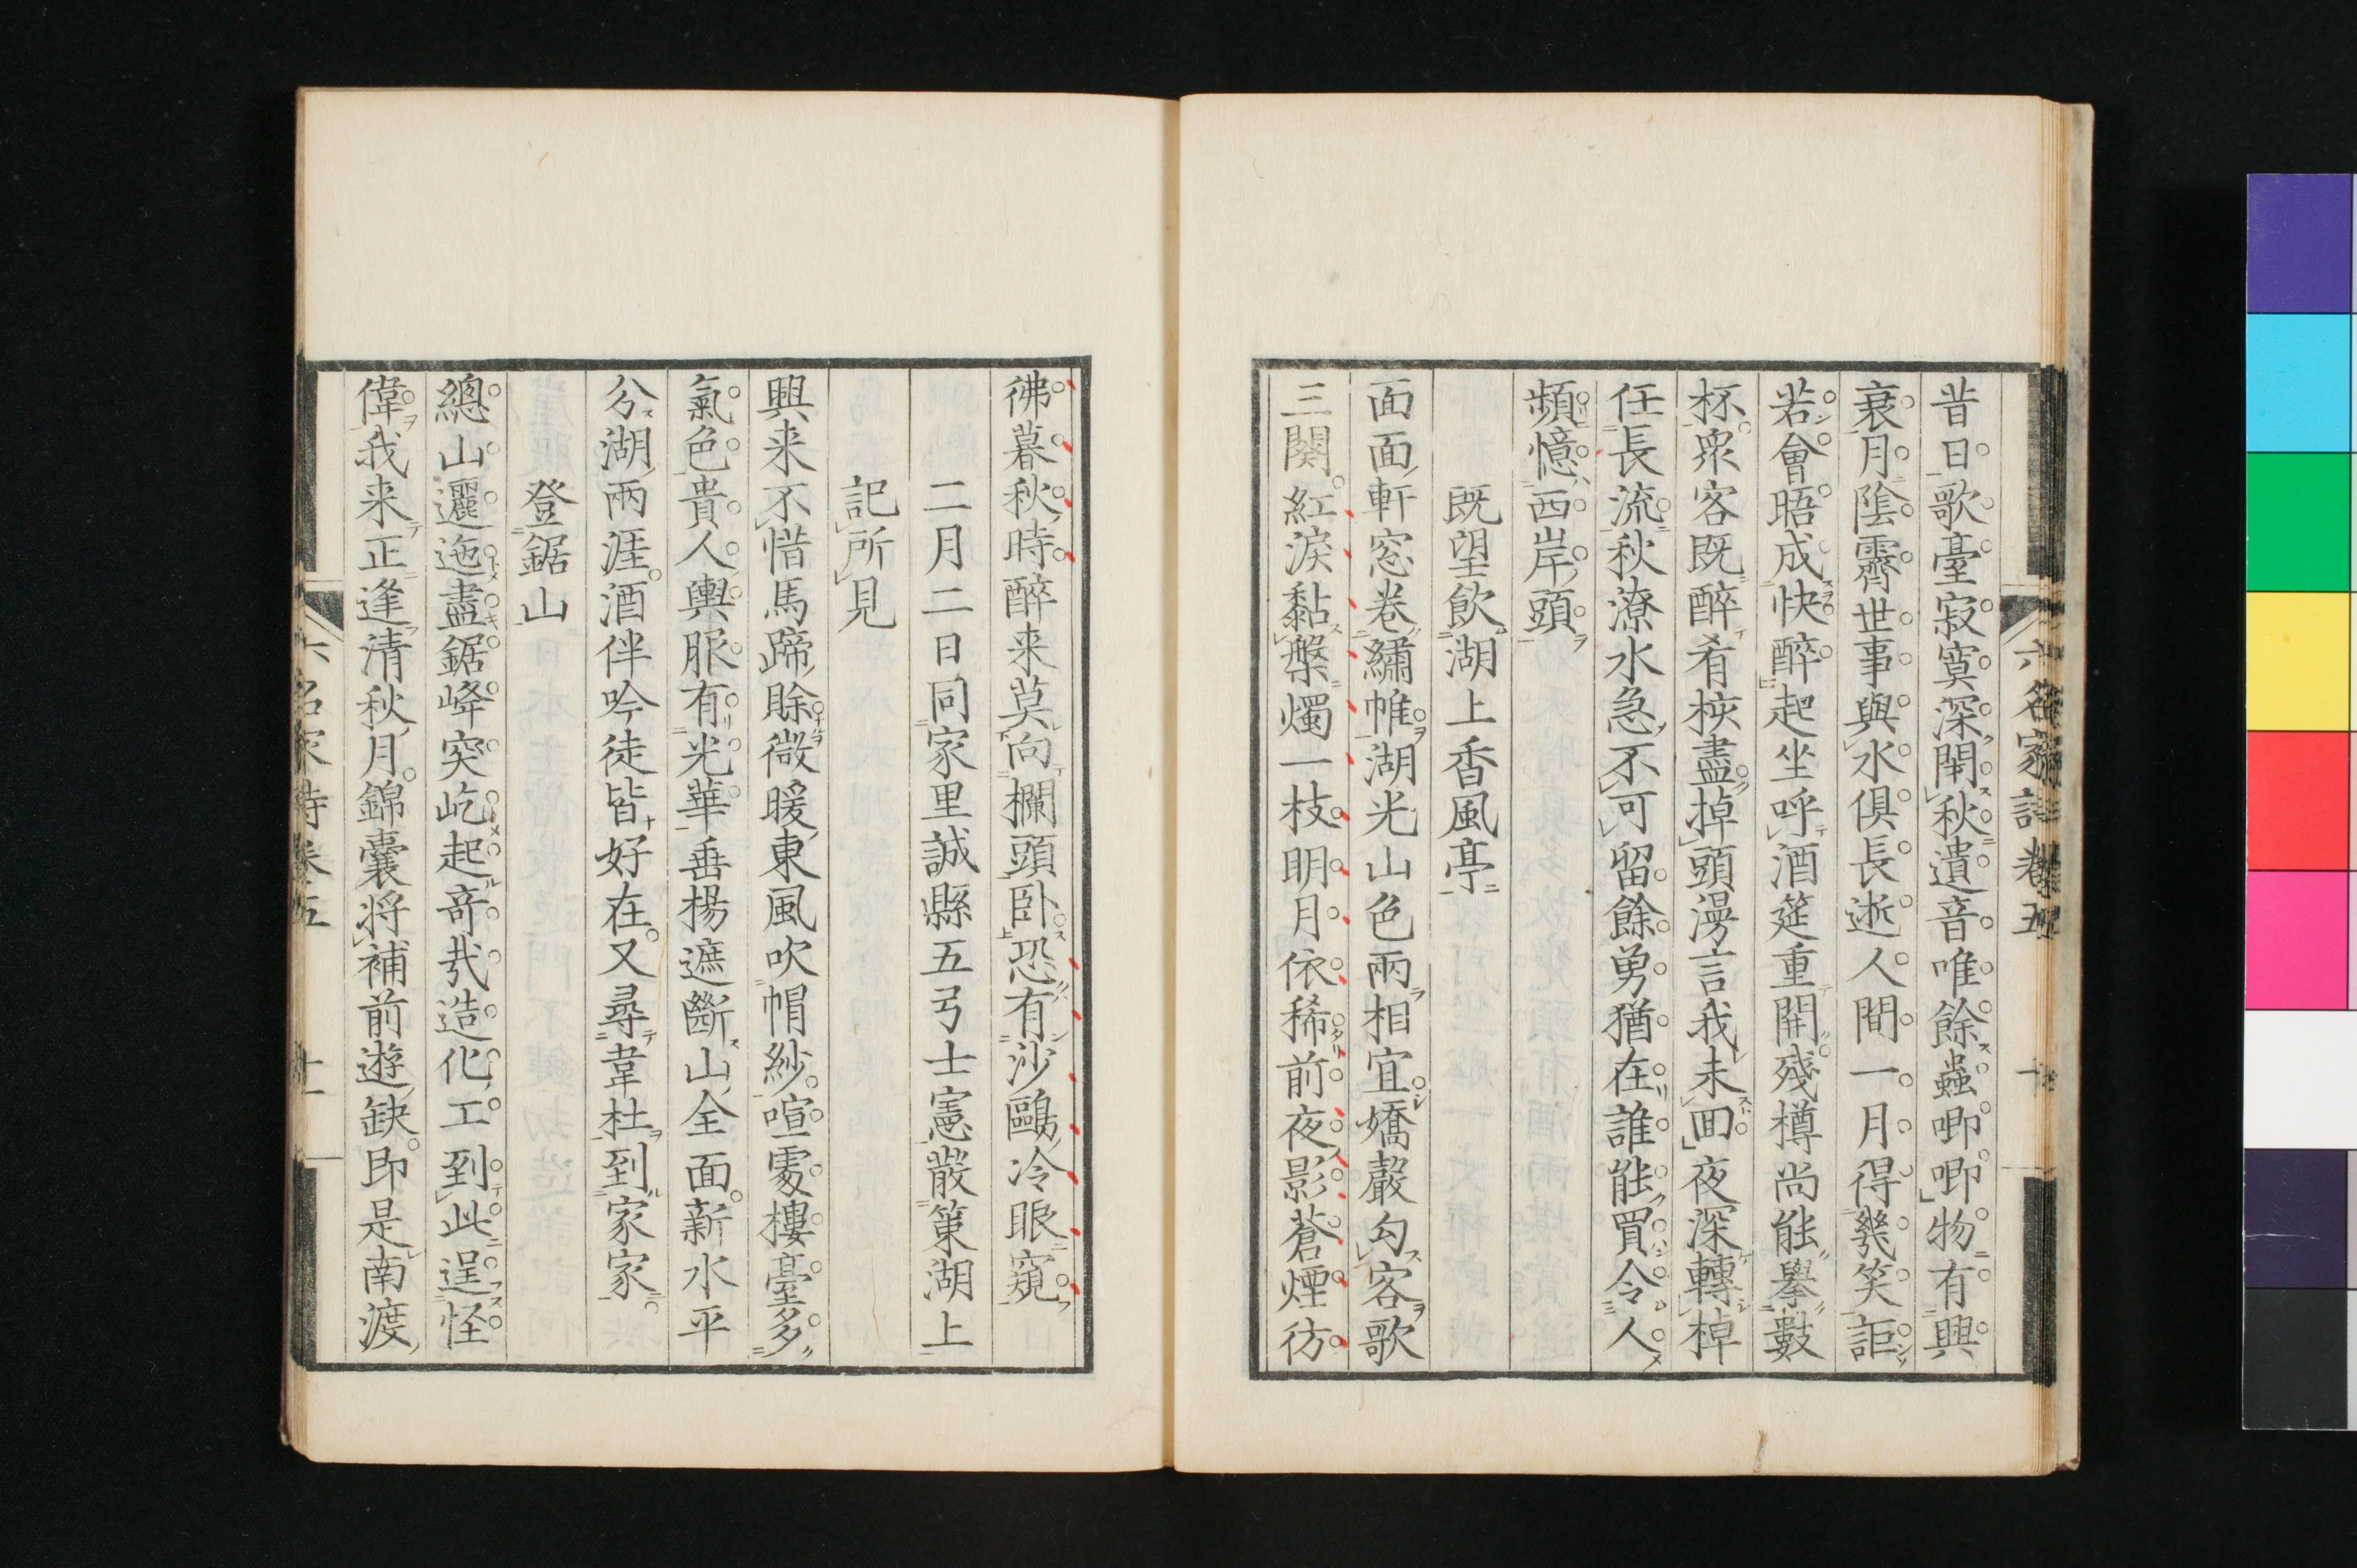 昔日歌臺寂寞深閑秋遺音唯餘蟲喞喞物有興
衰月陰霽世事與水俱長逝人間一月得幾笑詎
若會晤成快醉起坐呼酒筵重開殘樽尚能擧數
杯衆客既醉肴核盡掉頭漫言我未回夜深轉棹
任長流秋潦水急不可留餘勇猶在誰能買令人
頻憶西岸頭
既望飲湖上香風亭
面面軒窓巻繡帷湖光山色兩相宜嬌嚴勾客歌
三闋紅淚黏槃燭一枝明月依稀前夜影蒼煙彷
彿暮秋時醉来莫向欄頭卧恐有沙鷗冷眼窺
二月二日同家里誠縣五弓士憲叢策湖上
記所見
興来不惜馬蹄賒微暖東風吹帽紗喧處樓臺多
氣色貴人輿服有光華垂楊遮斷山全面新水平
分湖兩涯酒伴吟徒皆好在又尋韋杜到家家
登鋸山
總山邐迤盡鋸峰突屹起奇哉造化工到此逞怪
偉我来正逢清秋月錦囊将補前遊缺即是南渡
六名家詩巻五
十一